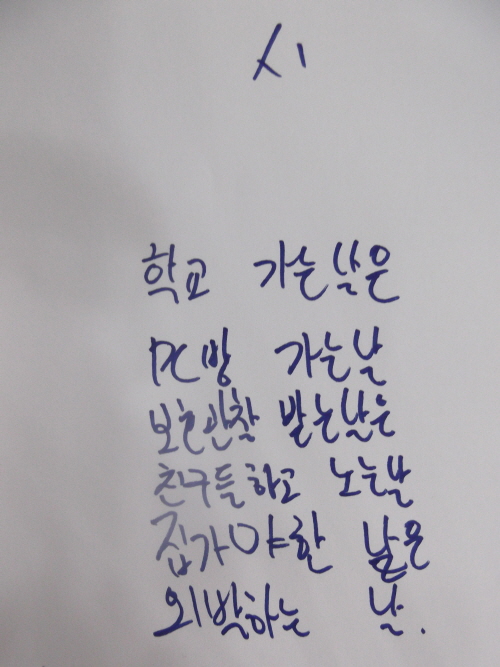 시
학교 가는날은
PC방 가는날
보호관찰 받는날은
친구들하고 노는날
집가야한 날은
외박하는 날.